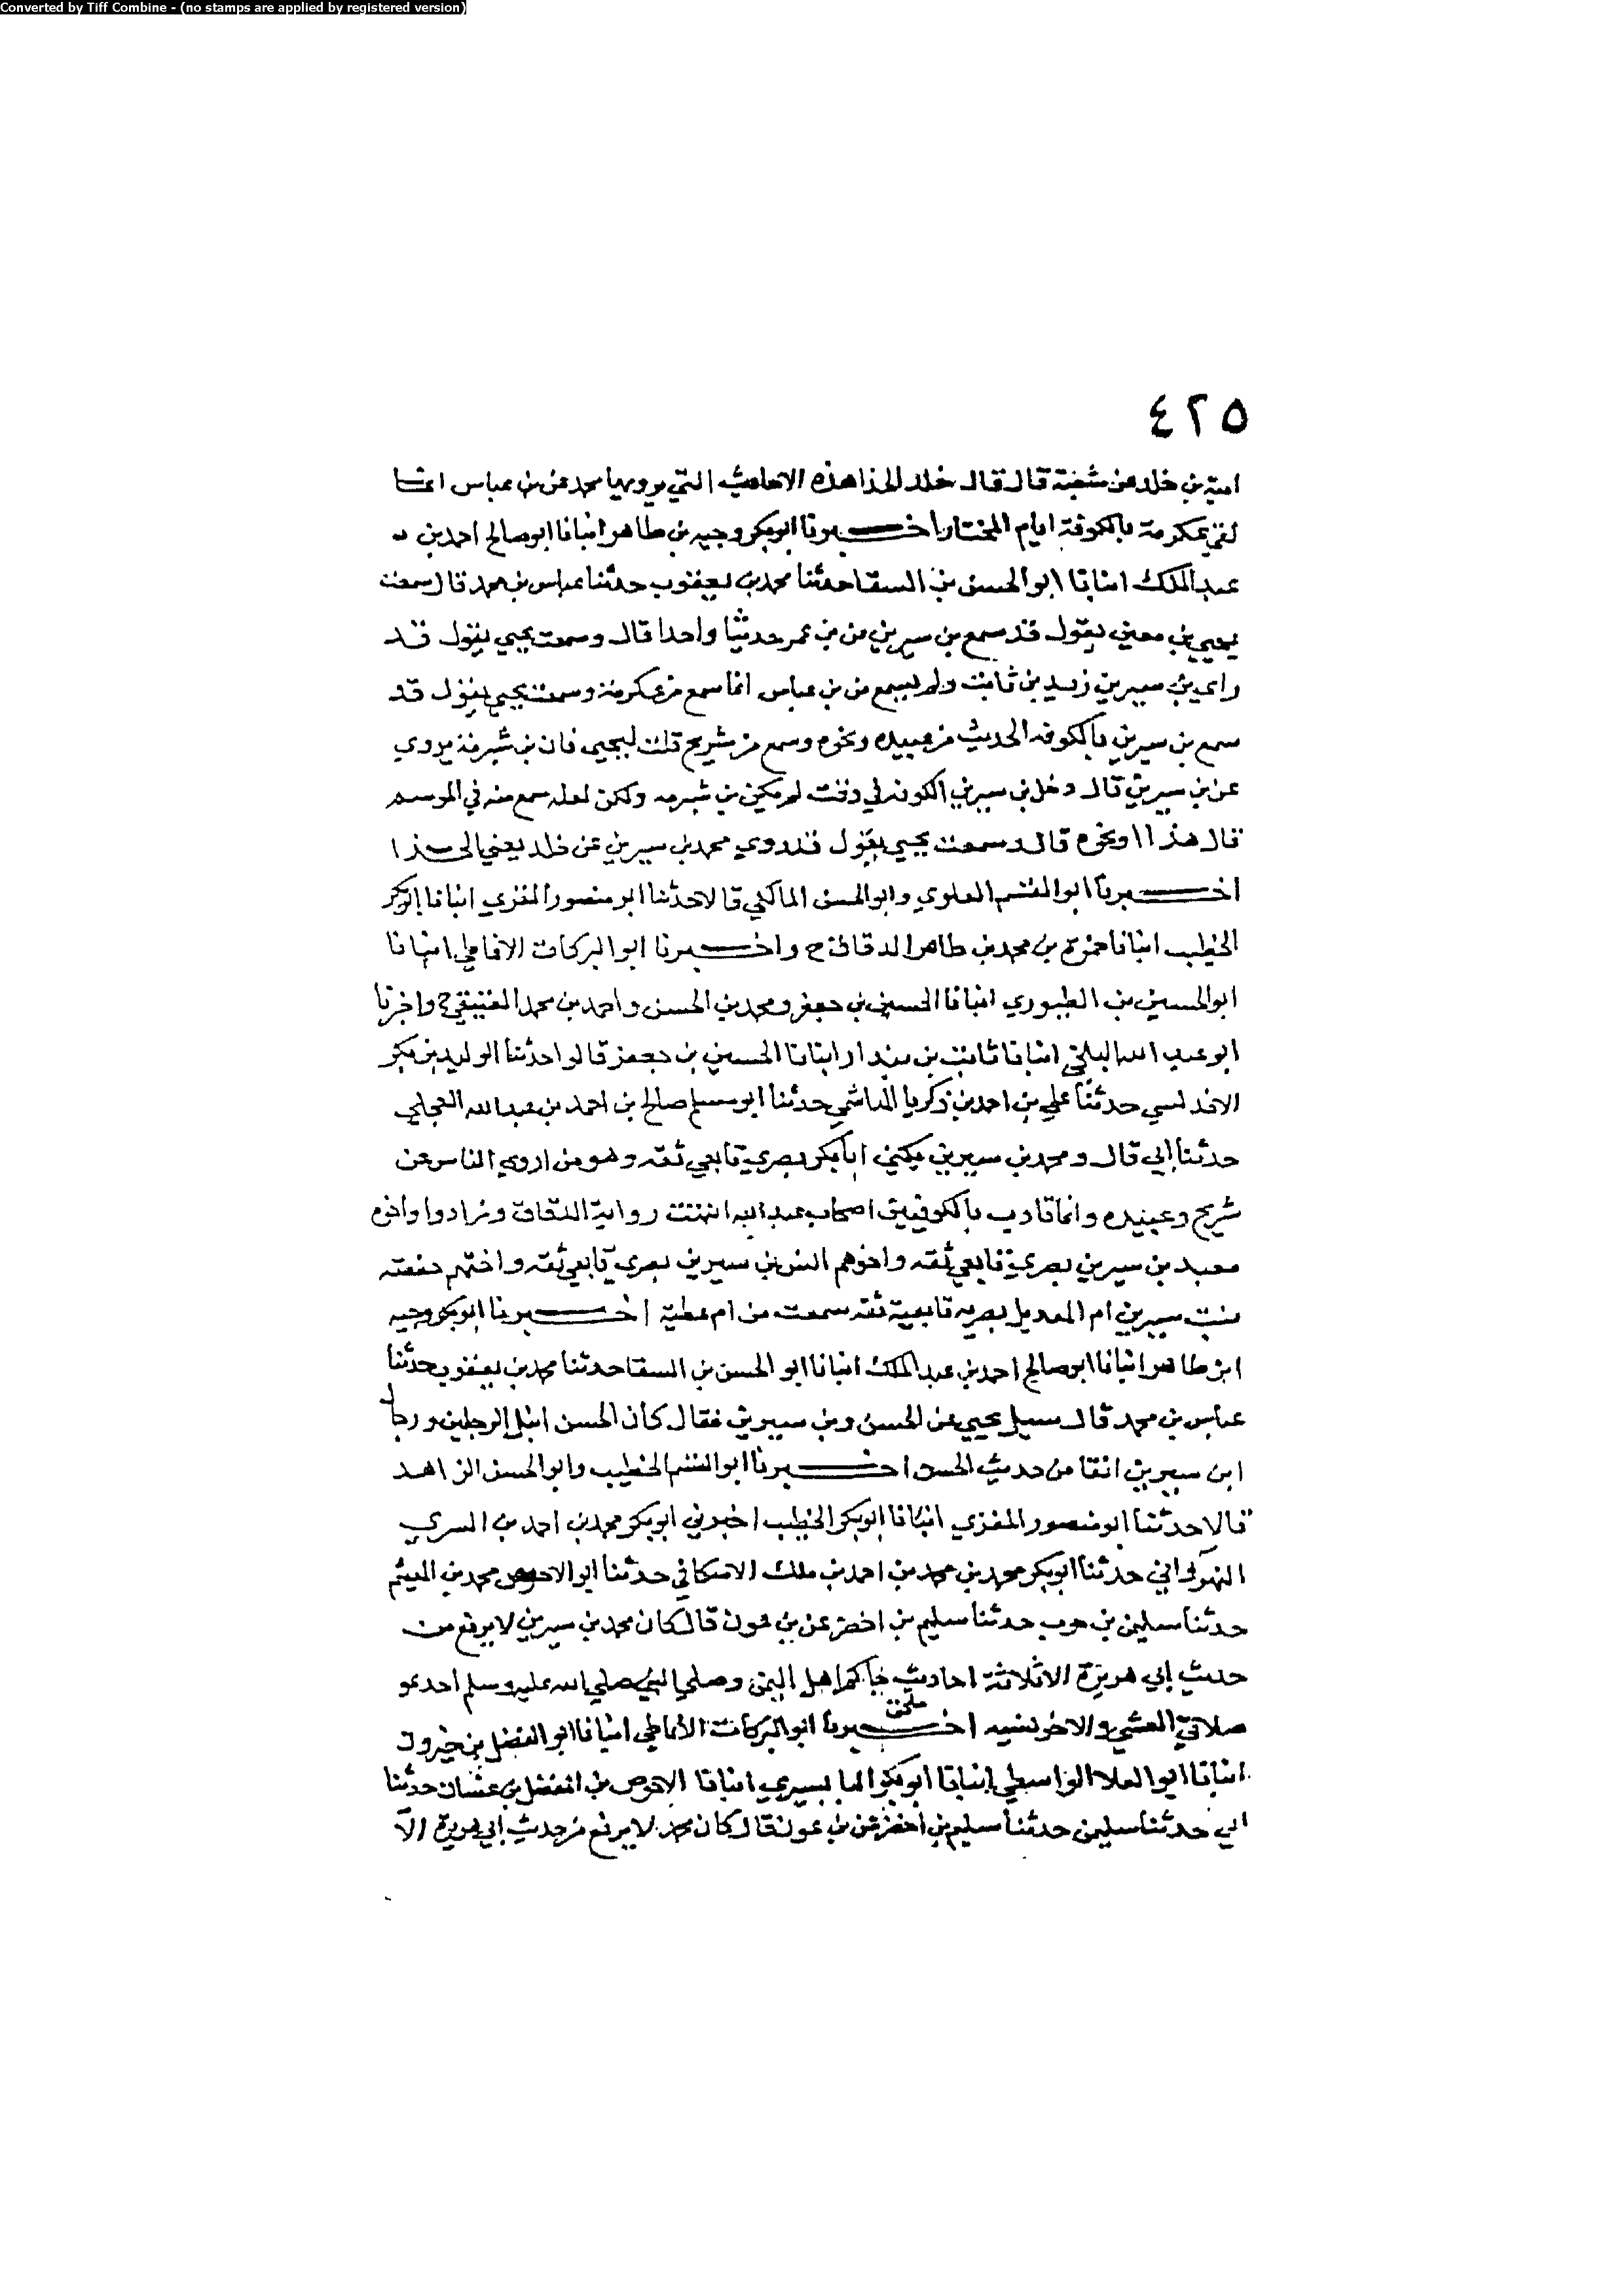 Converted by Tiff Combine - (no stamps are applied by registered version)
٤٢٥
امية بن خلد عن شعبة قال قال خلد الحذا هذه الاحاديث التي يرويها محمد عن بن عباس انما
لقي عكرمة بالكوفة ايام المختار اخبرنا ابو بكر وجيه بن طاهر انبانا ابو صالح احمد بن
عبد الملك انبانا ابو الحسن بن السقا حدثنا محمد بن يعقوب حدثنا عباس بن محمد قال سمعت
يحيي بن معين يقول قد سمع بن سيرين من بن عمر حديثا واحدا قال وسمعت يحيي يقول قد
راي بن سيرين زيد بن ثابت ولم يسمع من بن عباس انما سمع من عكرمة وسمعت يحيي يقول قد
سمع بن سيرين بالكوفه الحديث من عبيده ونحوه وسمع من شريح قلت ليحيي فان بن شبرمة يروي
عن بن سيرين قال دخل بن سيرين الكوفه في وقت لم يكن بن شبرمه ولكن لعله سمع منه في الموسم
قال هذا او نحوه قال وسمعت يحيي يقول قد روي محمد بن سيرين عن خلد يعني الحذا
اخبرنا ابو القسم العلوي وابو الحسن المالكي قالا حدثنا ابو منصور المقري انبانا ابو بكر
الخطيب انبانا حمزة بن محمد بن طاهر الدقاق ح واخبرنا ابو البركات الانماطي انبانا
ابو الحسين بن الطيوري انبانا الحسين بن جعفر ومحمد بن الحسن واحمد بن محمد العتيقي ح واخبرنا
ابو عبد الله البلخي انبانا ثابت بن بندار انبانا الحسين بن جعفر قالوا حدثنا الوليد بن بكر
الاندلسي حدثنا علي بن احمد بن زكريا الهاشمي حدثنا ابو مسلم صالح بن احمد بن عبد الله العجلي
حدثنا ابي قال ومحمد بن سيرين يكني ابا بكر بصري تابعي ثقه وهو من اروي الناس عن
شريح وعبيده وانما تادب بالكوفيين اصحاب عبد الله انتهت رواية الدقاق وزادوا واخوه
معبد بن سيرين بصري تابعي ثقه واخوهم انس بن سيرين بصري تابعي ثقه واختهم حفصه
بنت سيرين ام الهذيل بصريه تابعية ثقه سمعت من ام عطية اخبرنا ابو بكر وجيه
ابن طاهر انبانا ابو صالح احمد بن عبد الملك انبانا ابو الحسن بن السقا حدثنا محمد بن يعقوب حدثنا
عباس بن محمد قال سيل يحيي عن الحسن وبن سيرين فقال كان الحسن انبل الرجلين ورجال
ابن سيرين انقا من حديث الحسن اخبرنا ابو القسم الخطيب وابو الحسن الزاهد
قالا حدثنا ابو منصور المقري انبانا ابو بكر الخطيب اخبرني ابو بكر محمد بن احمد بن السري
النهرواني حدثنا ابو بكر محمد بن محمد بن احمد بن ملك الاسكافي حدثنا ابو الاحوص محمد بن الهيثم
حدثنا سليمن بن حرب حدثنا سليم بن اخضر عن بن عون قال كان محمد بن سيرين لا يرفع من
حديث ابي هريرة الا ثلاثة احاديث جاكم اهل اليمن وصلي النبي صلي الله عليه وسلم احدي
صلاتي العشي والاخر نسيه اخبرنا ابو البركات الانماطي انبانا ابو الفضل بن خيرون
ملحق
انبانا ابو العلا الواسطي انبانا ابو بكر البابسيري انبانا الاحوص بن المفضل بن غسان حدثنا
ابي حدثنا سليمن حدثنا سليم بن اخضر عن بن عون قال كان محمد لا يرفع من حديث ابي هريرة الا